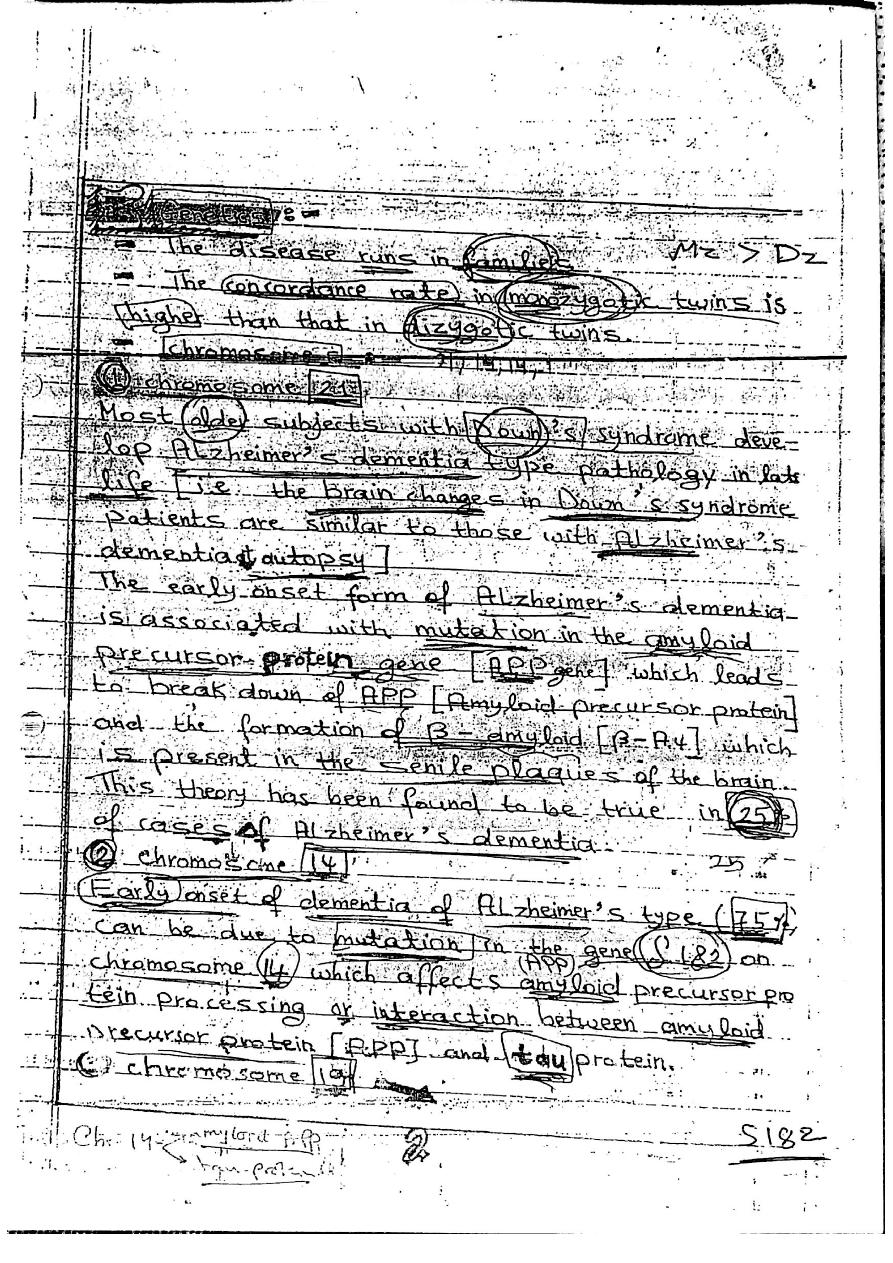 Genetics :-
- The disease runs in families Mz > Dz
- The concordance rate in monozygotic twins is
higher than that in dizygotic twins.
- chromosomes 21, 19, 14, 1
① chromosome 21
Most older subjects with Down's syndrome deve-
lop Alzheimer's dementia type pathology in late
life [i.e. the brain changes in Down's syndrome
patients are similar to those with Alzheimer's
dementia autopsy]
The early onset form of Alzheimer's dementia
is associated with mutation in the amyloid
precursor protein gene [APP gene] which leads
to break down of APP [Amyloid precursor protein]
and the formation of β-amyloid [β-A4] which
is present in the senile plaques of the brain.
This theory has been found to be true in 25%
of cases of Alzheimer's dementia
② chromosome 14 25%
Early onset of dementia of Alzheimer's type (75%)
can be due to mutation in the gene S182 on
chromosome 14 which affects (APP) amyloid precursor pro
tein processing or interaction between amyloid
precursor protein [APP] and tau protein.
chromosome 19
Ch. 14 amyloid APP 2 S182
tau protein